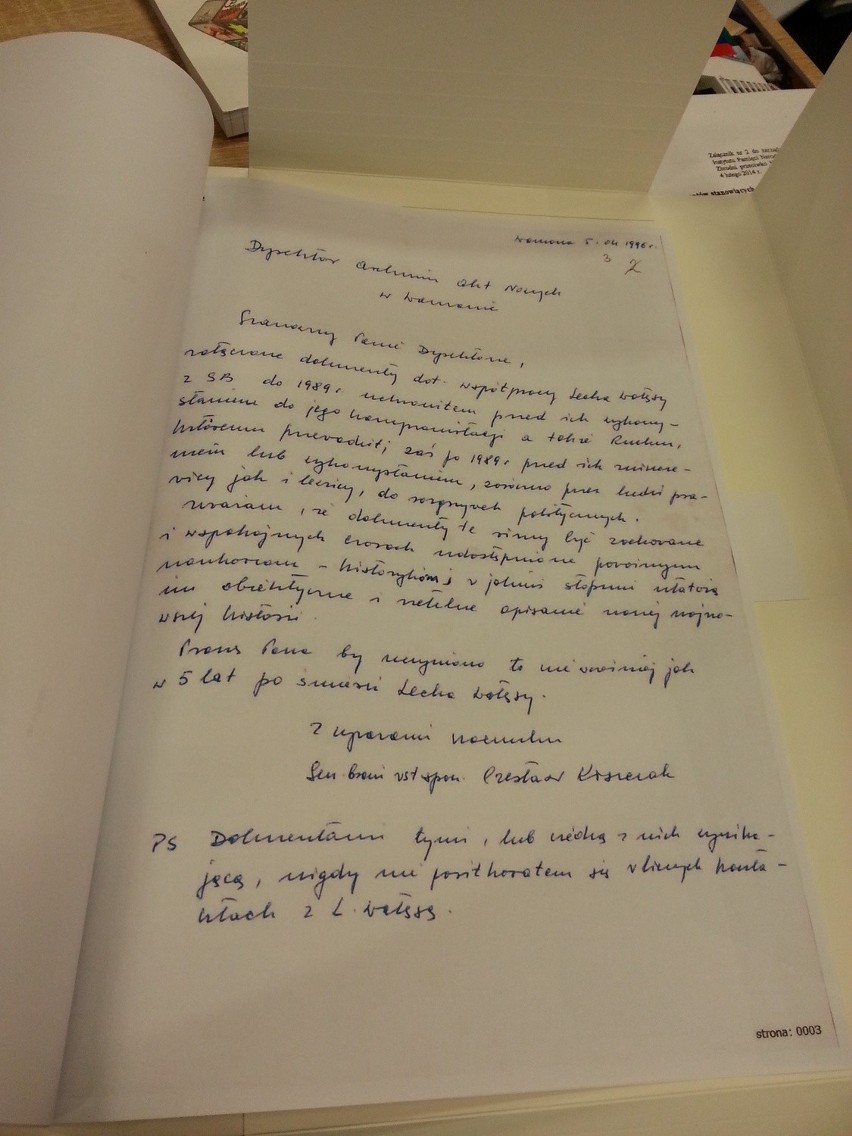 Załącznik nr 2 do zarząd
Instytutu Pamięci Narod
Zbrodni przeciwko
4 lutego 2014 r.
stanowiących
Warszawa 5. 04 1996 r.
3 2
Dyrektor Archiwum Akt Nowych
w Warszawie
Szanowny Panie Dyrektorze,
załączone dokumenty dot. współpracy Lecha Wałęsy
z SB do 1989 r. uchroniłem przed ich wykorzy-
staniem do jego kompromitacji a także Ruchu,
któremu przewodził; zaś po 1989 r. przed ich zniszcze-
niem lub wykorzystaniem, zarówno przez ludzi pra-
wicy jak i lewicy, do rozgrywek politycznych.
Uważam, że dokumenty te winny być zachowane
i w spokojnych czasach udostępnione poważnym
naukowcom – historykom i w jakimś stopniu ułatwią
im obiektywne i rzetelne opisanie naszej najno-
wszej historii.
Proszę Pana by uczyniono to nie wcześniej jak
w 5 lat po śmierci Lecha Wałęsy.
Z wyrazami szacunku
Gen. broni w st. spocz. Czesław Kiszczak
PS Dokumentami tymi, lub wiedzą z nich wynika-
jącą, nigdy nie posiłkowałem się w licznych konta-
ktach z L. Wałęsą.
strona: 0003